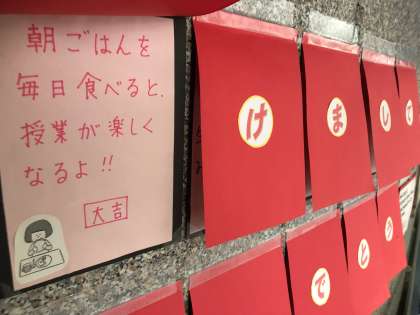 朝ごはんを
毎日食べると、
授業が楽しく
なるよ!!
大吉
けまして
でとう